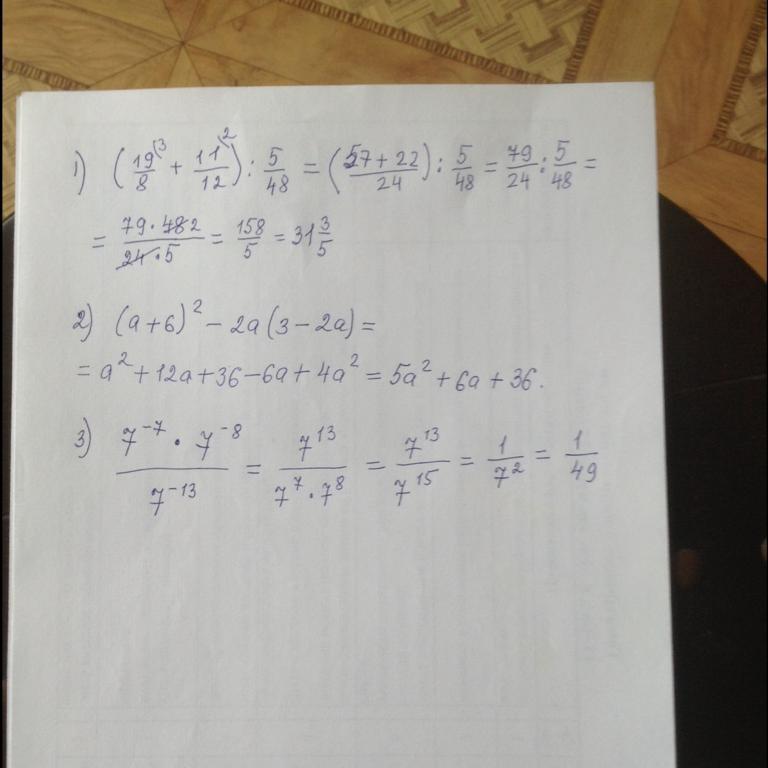 1) (19/8 (3 + 11/12 (2) : 5/48 = (57+22/24) : 5/48 = 79/24 : 5/48 =
= 79·48 2/24·5 = 158/5 = 31 3/5
2) (a+6)² - 2a(3-2a) =
= a² + 12a + 36 - 6a + 4a² = 5a² + 6a + 36.
3) 7⁻⁷ · 7⁻⁸/7⁻¹³ = 7¹³/7⁷·7⁸ = 7¹³/7¹⁵ = 1/7² = 1/49